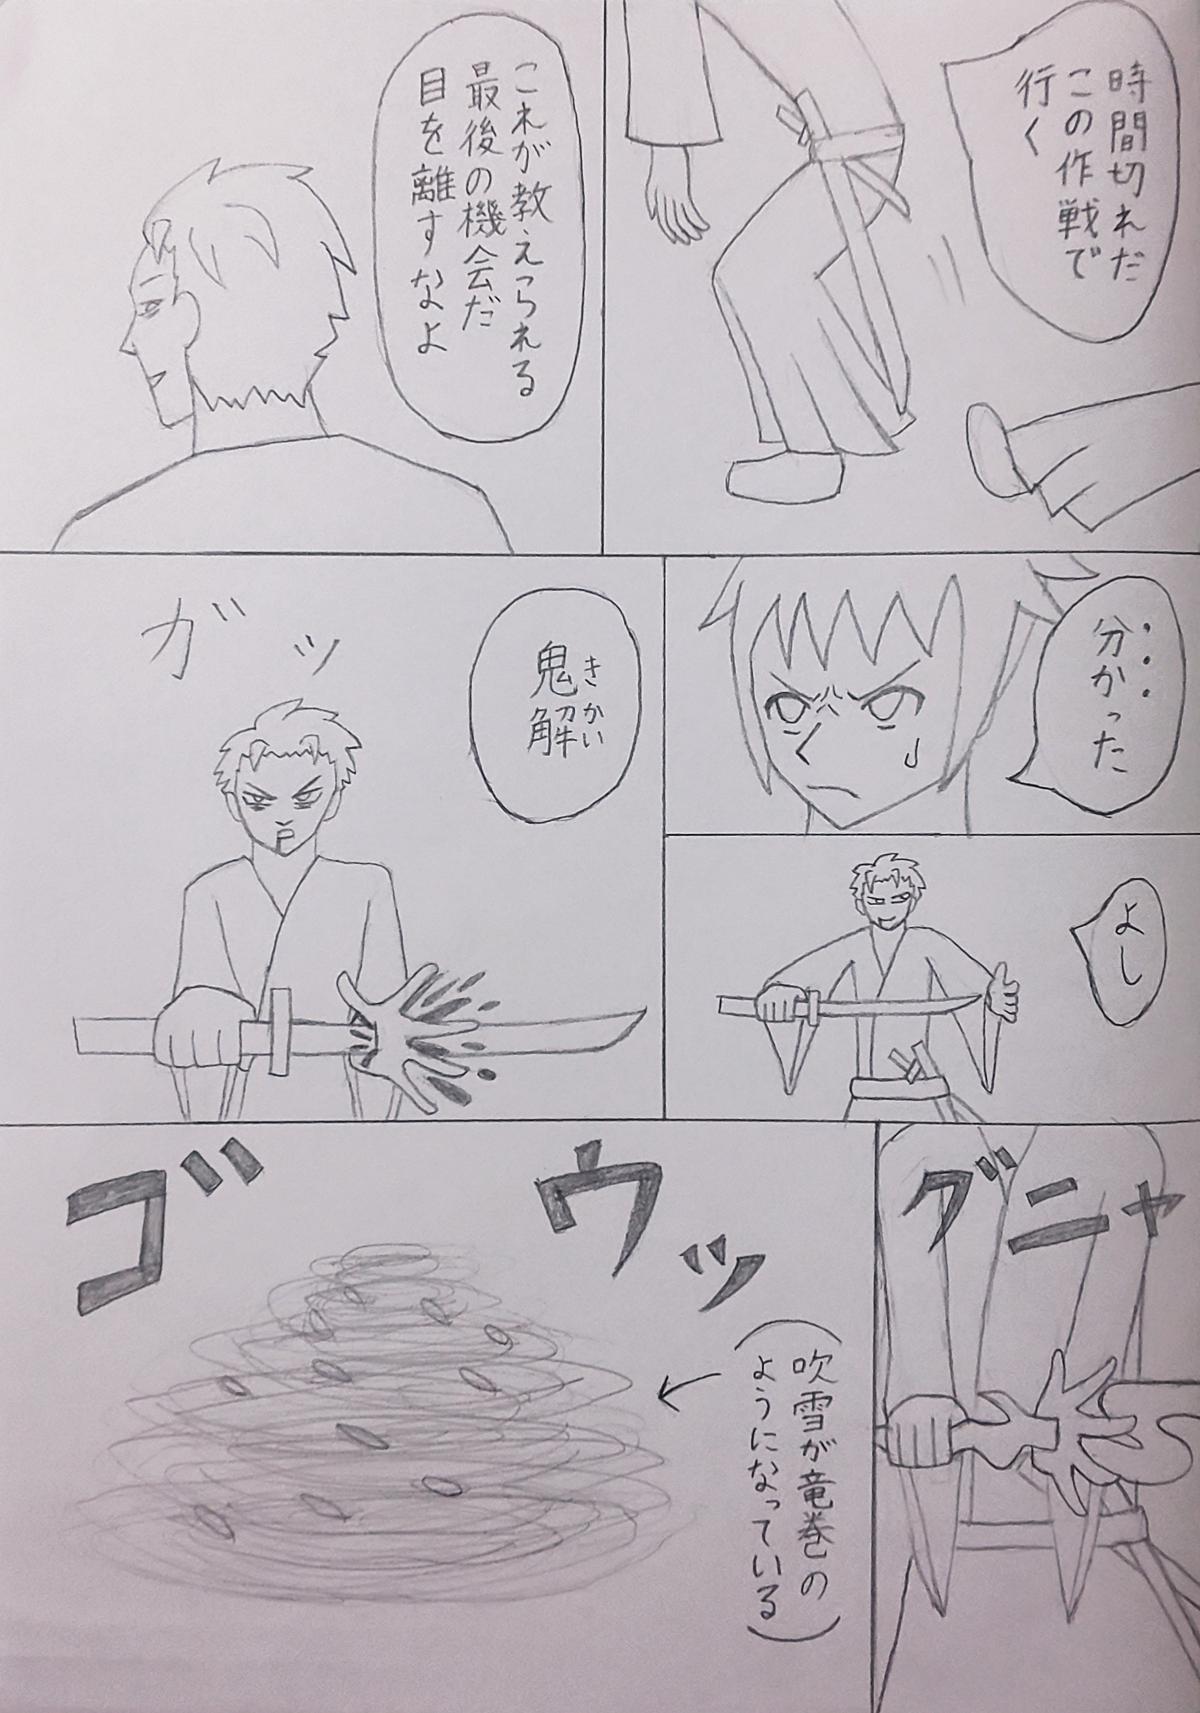 時間切れだ
この作戦で
行く
これが教えられる
最後の機会だ
目を離すなよ
・・・
分かった
よし
鬼解
きかい
ガッ
グニャ
ゴウッ
(吹雪が竜巻の
ようになっている)